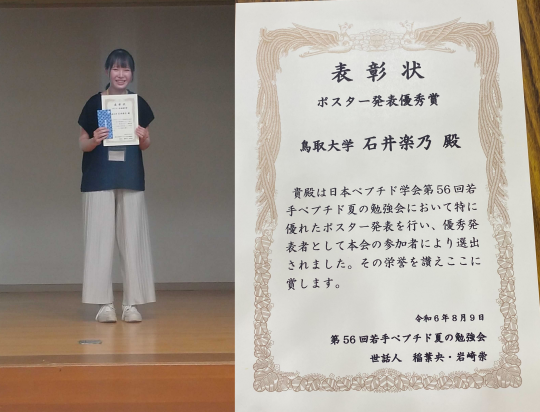 表彰状
ポスター発表優秀賞
鳥取大学 石井楽乃 殿
貴殿は日本ペプチド学会第56回若
手ペプチド夏の勉強会において特に
優れたポスター発表を行い、優秀発
表者として本会の参加者により選出
されました。その栄誉を讃えここに
賞します。
令和6年8月9日
第56回若手ペプチド夏の勉強会
世話人 稲葉央・岩崎崇